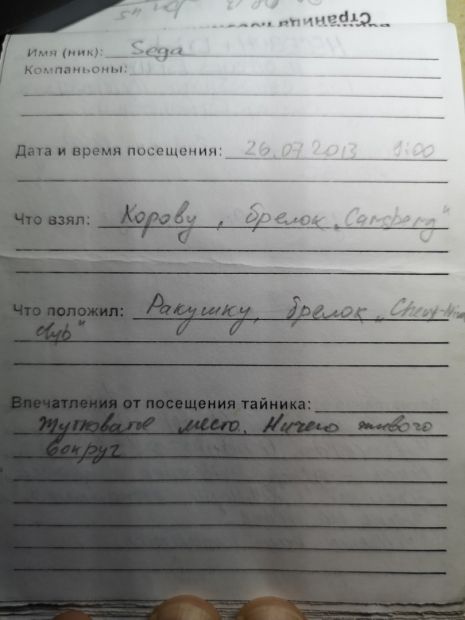 Страница
Имя (ник): Sega
Компаньоны:
Дата и время посещения: 26.07.2013 9:00
Что взял: Корову, брелок „Carsberg“
Что положил: Ракушку, брелок „Chevy-Niva
club“
Впечатления от посещения тайника:
Жутковатое место. Ничего живого
вокруг